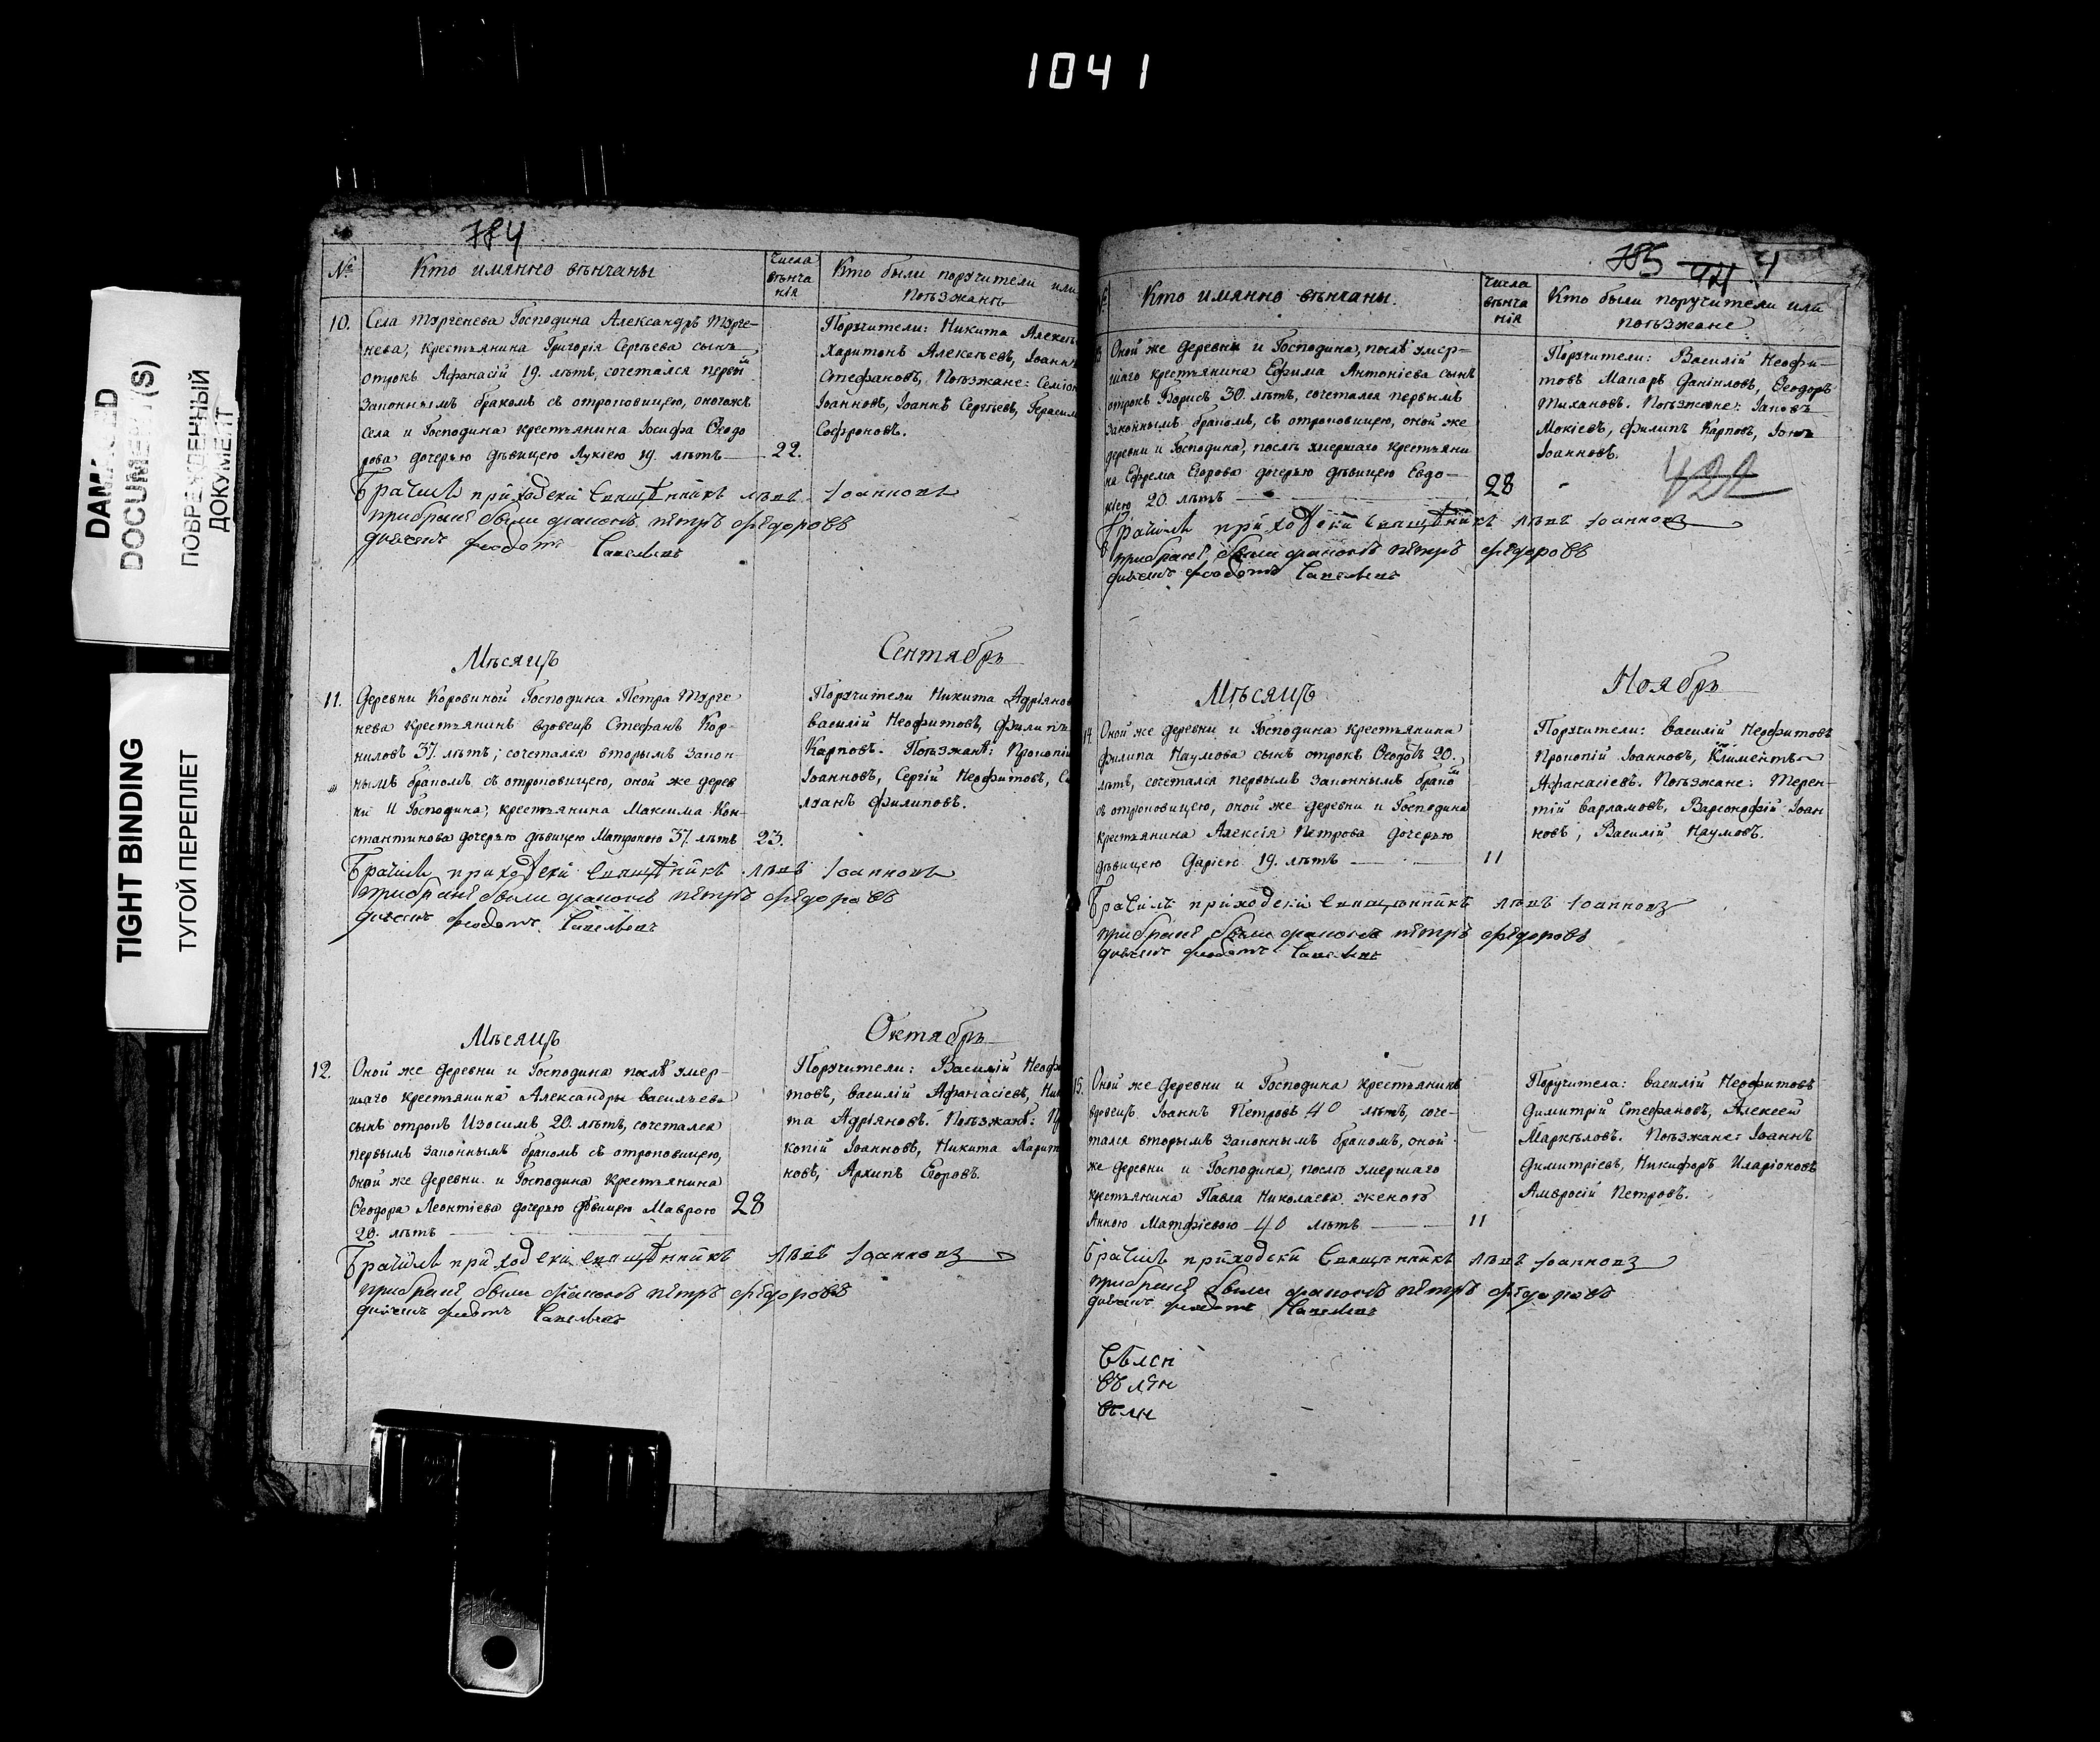 1041
DAMAGED
DOCUMENT(S)
ПОВРЕЖДЕННЫЙ
ДОКУМЕНТ
TIGHT BINDING
ТУГОЙ ПЕРЕПЛЕТ
784
№ Кто имянно вѣнчаны Числа вѣнчанія Кто были поручители или
поѣзжанѣ
10. Села Тургенева Господина Александръ Турге-
нева, крестьянина Григорія Сергѣева сынъ
отрокъ Афанасій 19. лѣтъ, сочетался первый
законнымъ бракомъ съ отроковицею, оногожъ
села и Господина крестьянина Іосифа Ѳеодо
рова дочерью дѣвицею Лукіею 19. лѣтъ 22.
Поручители: Никита Алексѣ
Харитонъ Алексѣевъ, Іоаннъ
Стефановъ, Поѣзжане: Семіон
Іоанновъ, Іоаннъ Сергѣевъ, Герасим
Софроновъ.
Брачилъ приходски священникъ Левъ Іоанновъ
при браке были диаконъ петръ Федоровъ
дьячекъ феодотъ Савельевъ
Мѣсяцъ Сентябрь
11. Деревни Коровиной Господина Петра Турге
нева крестьянинъ вдовецъ Стефанъ Кор-
ниловъ 37. лѣтъ; сочетался вторымъ закон-
нымъ бракомъ, съ отроковицею, оной же дерев
ни и Господина, крестьянина Максима Кон-
стантинова дочерью дѣвицею Матроною 37. лѣтъ 23.
Поручители Никита Адріянов
Василій Неофитовъ, Филипъ
Карповъ. Поѣзжанѣ: Прокопій
Іоанновъ, Сергій Неофитовъ, С
луанъ Филиповъ.
Брачилъ приходски священникъ Левъ Іоанновъ
при браке были диаконъ петръ Федоровъ
дьячекъ феодотъ Савельевъ
Мѣсяцъ Октябрь
12. Оной же Деревни и Господина послѣ умер-
шаго крестьянина Александры Васильева
сынъ отрокъ Изосимъ 20. лѣтъ, сочетался
первымъ законнымъ бракомъ съ отроковицею,
оной же Деревни и Господина крестьянина
Ѳеодора Леонтіева дочерью дѣвицею Маврою 28
20. лѣтъ
Поручители: Василій Неофи
товъ, Василій Афанасіевъ, Ник
та Адріяновъ. Поѣзжанѣ: Пр
копій Іоанновъ, Никита Харит
новъ, Архипъ Егоровъ.
Брачилъ приходски священникъ Левъ Іоанновъ
при браке были диаконъ петръ Федоровъ
дьячекъ феодотъ Савельевъ
785
Кто имянно вѣнчаны. Числа вѣнчанія Кто были поручители или
поѣзжане
Оной же Деревни и Господина, послѣ умер-
шаго крестьянина Ефима Антоніева сынъ
отрокъ Борисъ 30. лѣтъ, сочетался первымъ
законнымъ бракомъ, съ отроковицею, оной же
деревни и Господина, послѣ умершаго крестьяни
на Ефрема Егорова дочерью дѣвицею Евдо-
кіею 20. лѣтъ 28
Поручители: Василій Неофи-
товъ Макаръ Даніиловъ, Ѳеодоръ
Тихановъ. Поѣзжане: Іаковъ
Мокіевъ, Филипъ Карповъ, Іоаннъ
Іоанновъ.
422
Брачилъ приходски священникъ Левъ Іоанновъ
при браке были диаконъ петръ Федоровъ
дьячекъ феодотъ Савельевъ
Мѣсяцъ Ноябрь
14. Оной же деревни и Господина крестьянина
Филипа Наумова сынъ отрокъ Ѳеодотъ 20.
лѣтъ, сочетался первымъ законнымъ бракомъ
съ отроковицею, оной же деревни и Господина
крестьянина Алексія Петрова дочерью
дѣвицею Даріею 19. лѣтъ 11
Поручители: Василій Неофитовъ
Прокопій Іоанновъ, Климентъ
Афанасіевъ. Поѣзжане: Терен-
тій Варламовъ, Варсонофій Іоан
новъ, Василій Наумовъ.
Брачилъ приходски священникъ Левъ Іоанновъ
при браке были диаконъ петръ Федоровъ
дьячекъ феодотъ Савельевъ
15. Оной же Деревни и Господина крестьянинъ
вдовецъ Іоаннъ Петровъ 40 лѣтъ, соче-
тался вторымъ законнымъ бракомъ, оной
же деревни и Господина, послѣ умершаго
крестьянина Павла Николаева женою
Анною Матфіевою 40 лѣтъ 11
Поручителѣ: Василій Неофитовъ
Димитрій Стефановъ, Алексей
Маркѣловъ. Поѣзжане: Іоаннъ
Димитріевъ, Никифоръ Иларіоновъ
Амвросій Петровъ.
Брачилъ приходски священникъ Левъ Іоанновъ
при браке были диаконъ петръ Федоровъ
дьячекъ феодотъ Савельевъ